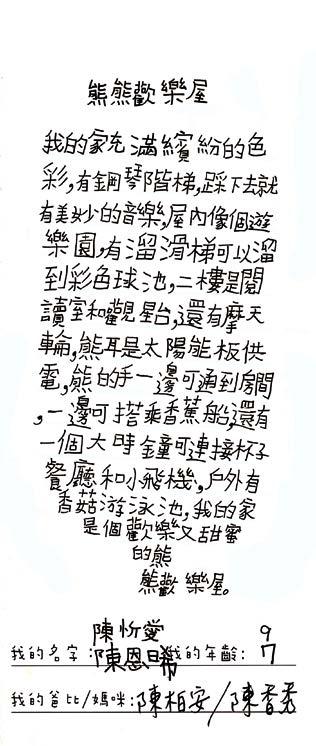 熊熊歡樂屋
我的家充滿繽紛的色
彩,有鋼琴階梯,踩下去就
有美妙的音樂,屋內像個遊
樂園,有溜滑梯可以溜
到彩色球池,二樓是閱
讀室和觀星台,還有摩天
輪,熊耳是太陽能板供
電,熊的手一邊可通到房間
,一邊可搭乘香蕉船,還有
一個大時鐘可連接杯子
餐廳和小飛機,戶外有
香菇游泳池,我的家
是個歡樂又甜蜜
的熊
熊歡樂屋。
陳忻愛 9
我的名字:陳恩晞 我的年齡:7
我的爸比/媽咪:陳柏安/陳香秀